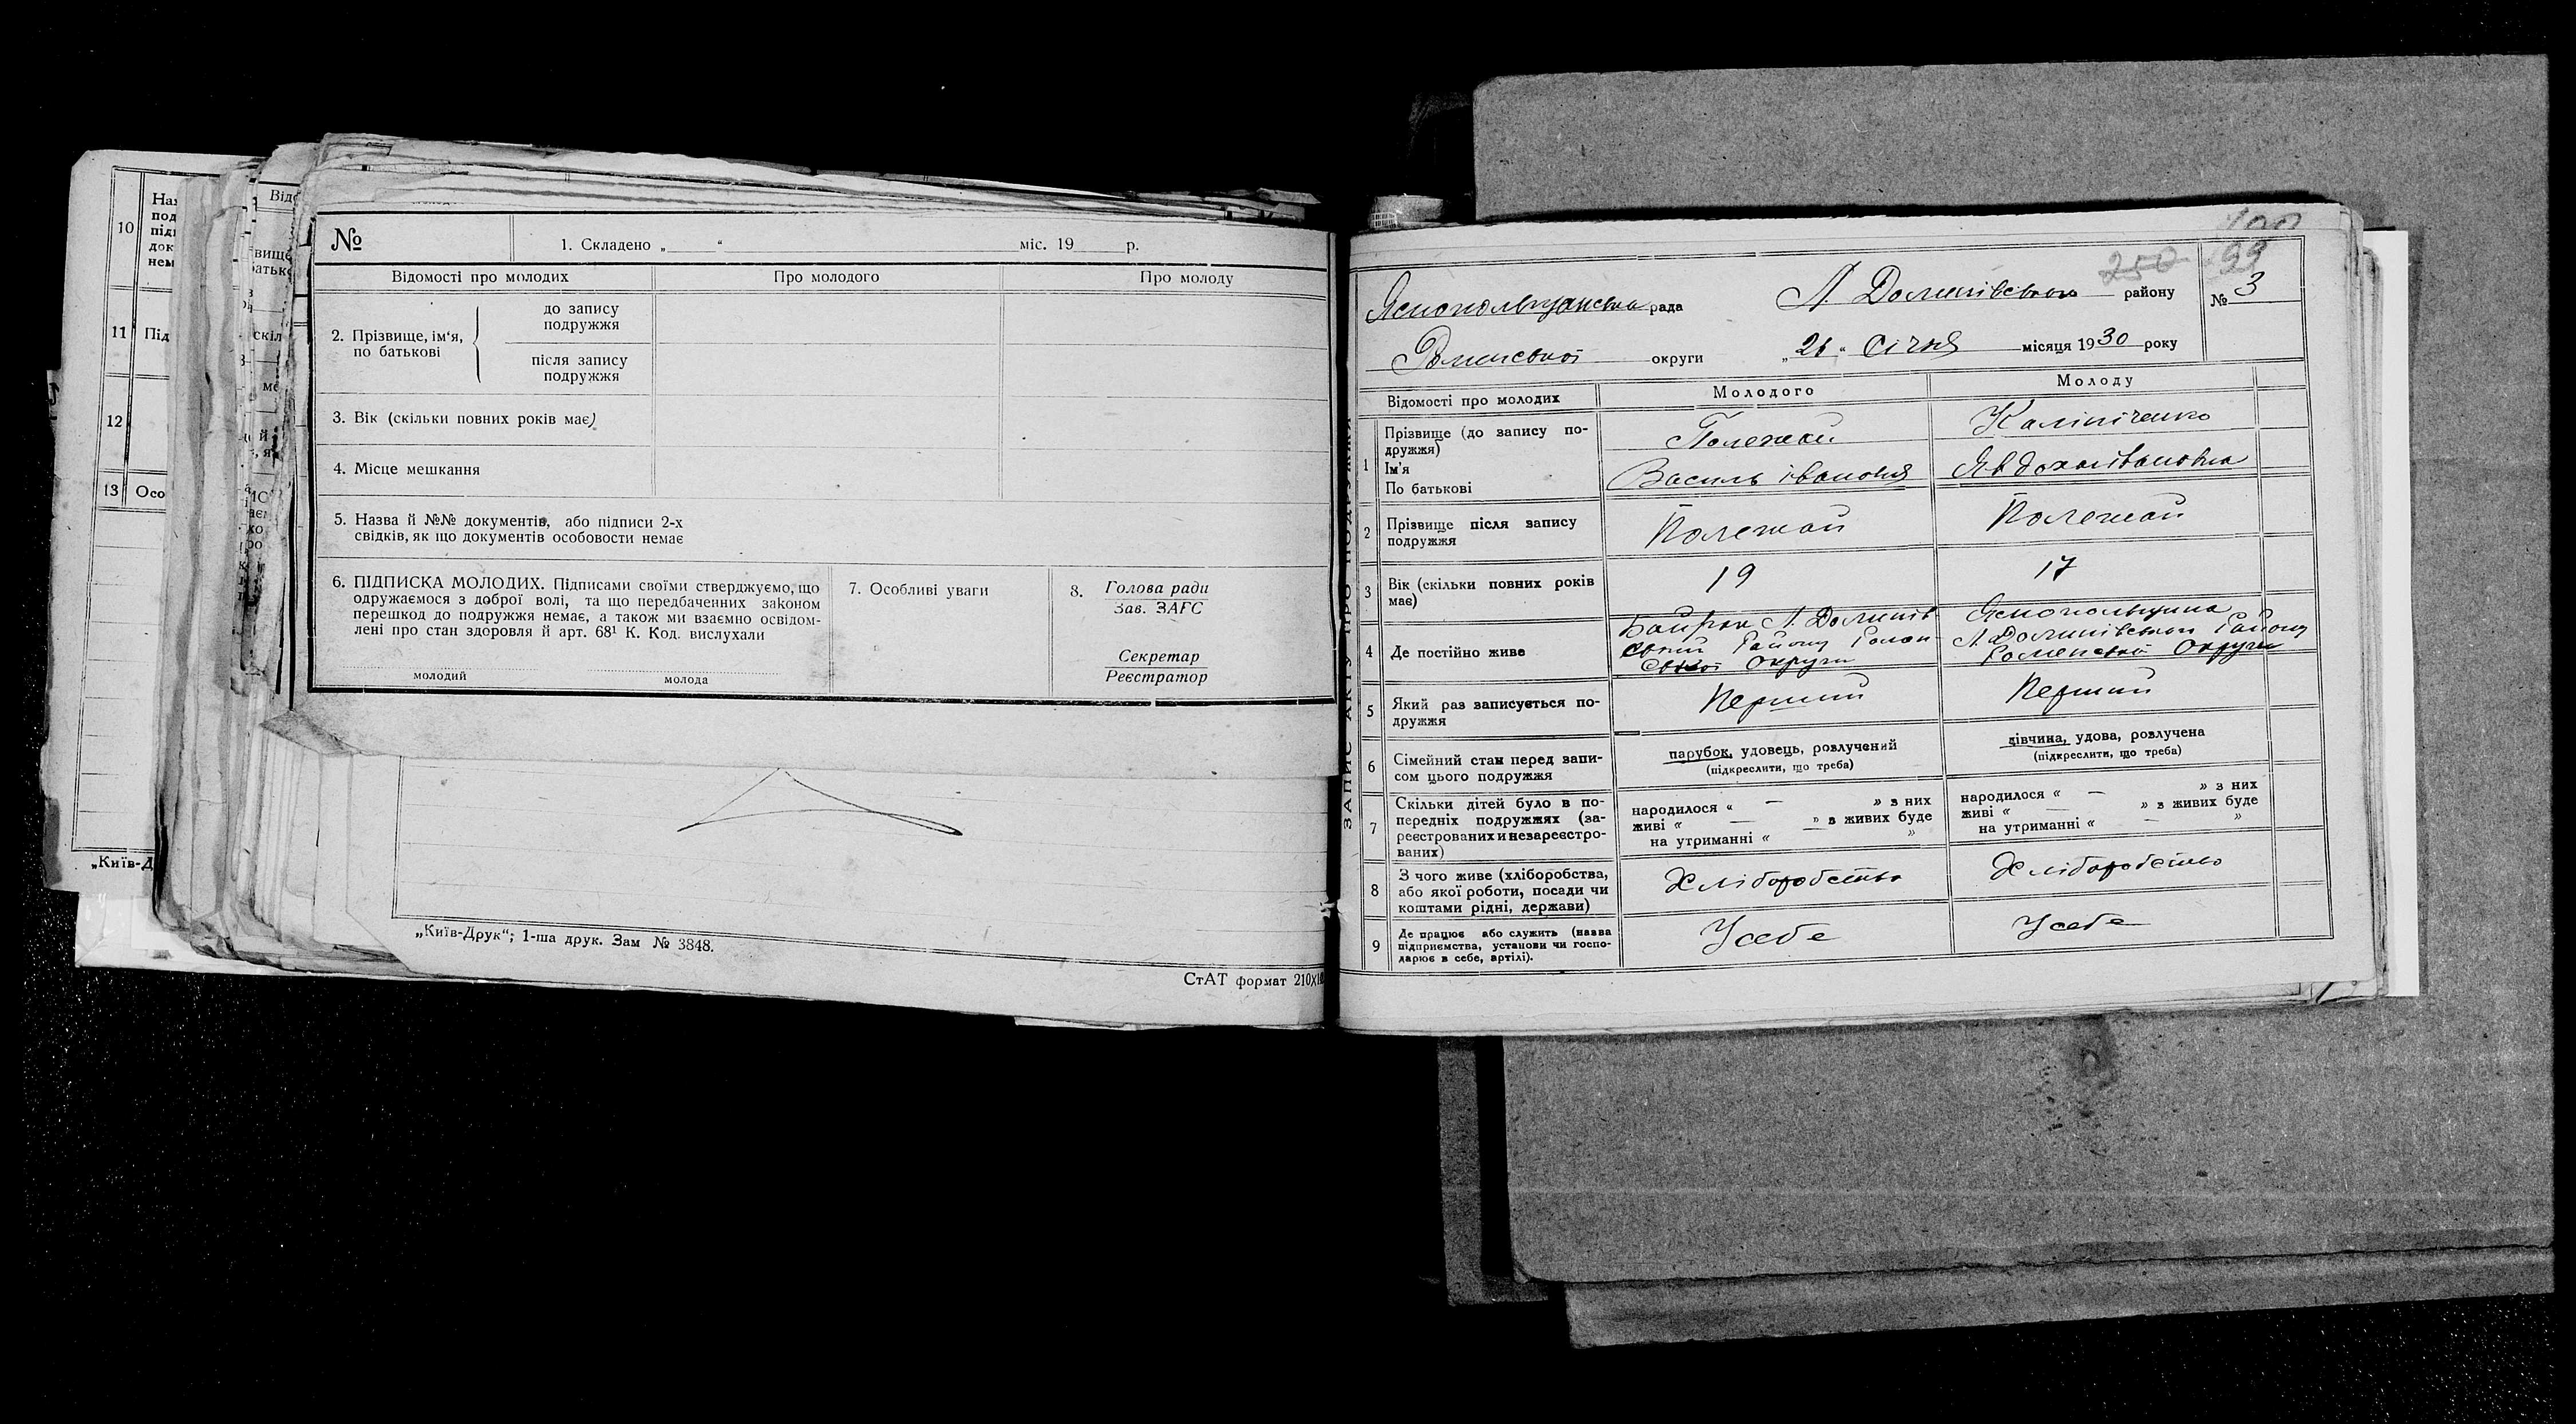 10
11 Під
12
13 Осо
„Київ-Д
№
1. Складено „ “ міс. 19 р.
Відомості про молодих
Про молодого
Про молоду
2. Прізвище, ім'я, по батькові
до запису подружжя
після запису подружжя
3. Вік (скільки повних років має)
4. Місце мешкання
5. Назва й №№ документів, або підписи 2-х
свідків, як що документів особовости немає
6. ПІДПИСКА МОЛОДИХ. Підписами своїми стверджуємо, що
одружаємося з доброї волі, та що передбаченних законом
перешкод до подружжя немає, а також ми взаємно освідом-
лені про стан здоровля й арт. 68¹ К. Код. вислухали
молодий молода
7. Особливі уваги
8. Голова ради
Зав. ЗАГС
Секретар
Реєстратор
„Київ-Друк“; 1-ша друк. Зам № 3848.
СтАТ формат 210х
ЗАПИС АКТУ ПРО ПОДРУЖЖЯ
250
99
Яснопольщанська рада Л. Долинівського району № 3
Роменської округи „26“ Січня місяця 1930 року
Відомості про молодих
Молодого
Молоду
1 Прізвище (до запису по-
дружжя)
Ім'я
По батькові
Полежай
Василь Івановия
Калініченко
Явдоха Івановна
2 Прізвище після запису
подружжя
Полежай
Полежай
3 Вік (скільки повних років
має)
19
17
4 Де постійно живе
Байрак Л. Долинів
ський Району Ромен
ської Округи
Яснопольщина
Л. Долинівського Району
Роменської Округи
5 Який раз записується по-
дружжя
Перший
Перший
6 Сімейний стан перед запи-
сом цього подружжя
парубок, удовець, розлучений
(підкреслити, що треба)
дівчина, удова, розлучена
(підкреслити, що треба)
7 Скільки дітей було в по-
передніх подружжях (за-
реєстрованих и незареєстро-
ваних)
народилося « — » з них
живі « — » з живих буде
на утриманні « — »
народилося « — » з них
живі « — » з живих буде
на утриманні « — »
8 З чого живе (хліборобства,
або якої роботи, посади чи
коштами рідні, держави)
Хліборобство
Хліборобство
9 Де працює або служить (назва
підприємства, установи чи госпо-
дарює в себе, артілі).
Усебе
Усебе